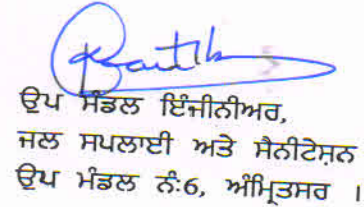 ਉਪ ਮੰਡਲ ਇੰਜੀਨੀਅਰ,
ਜਲ ਸਪਲਾਈ ਅਤੇ ਸੈਨੀਟੇਸ਼ਨ
ਉਪ ਮੰਡਲ ਨੰ:6, ਅੰਮ੍ਰਿਤਸਰ ।